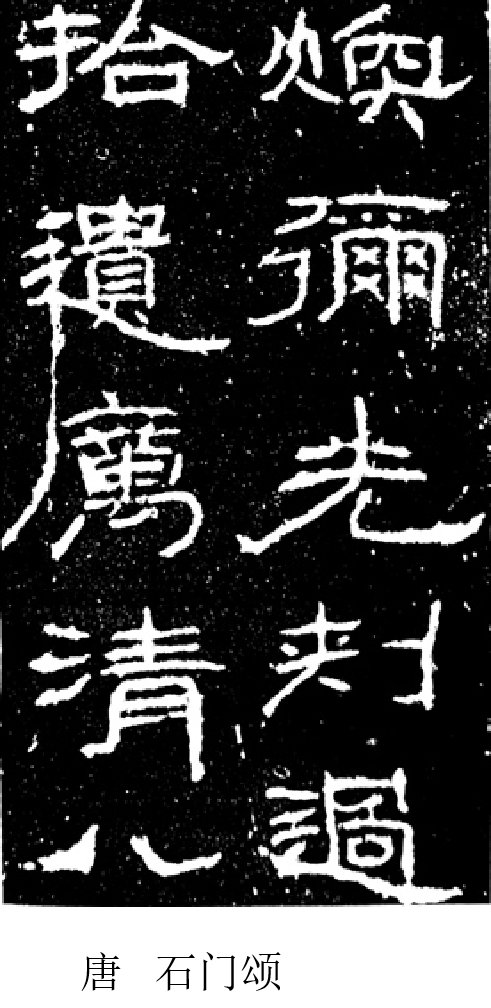 煥彌光刺過
拾遺厲清八
唐 石门颂